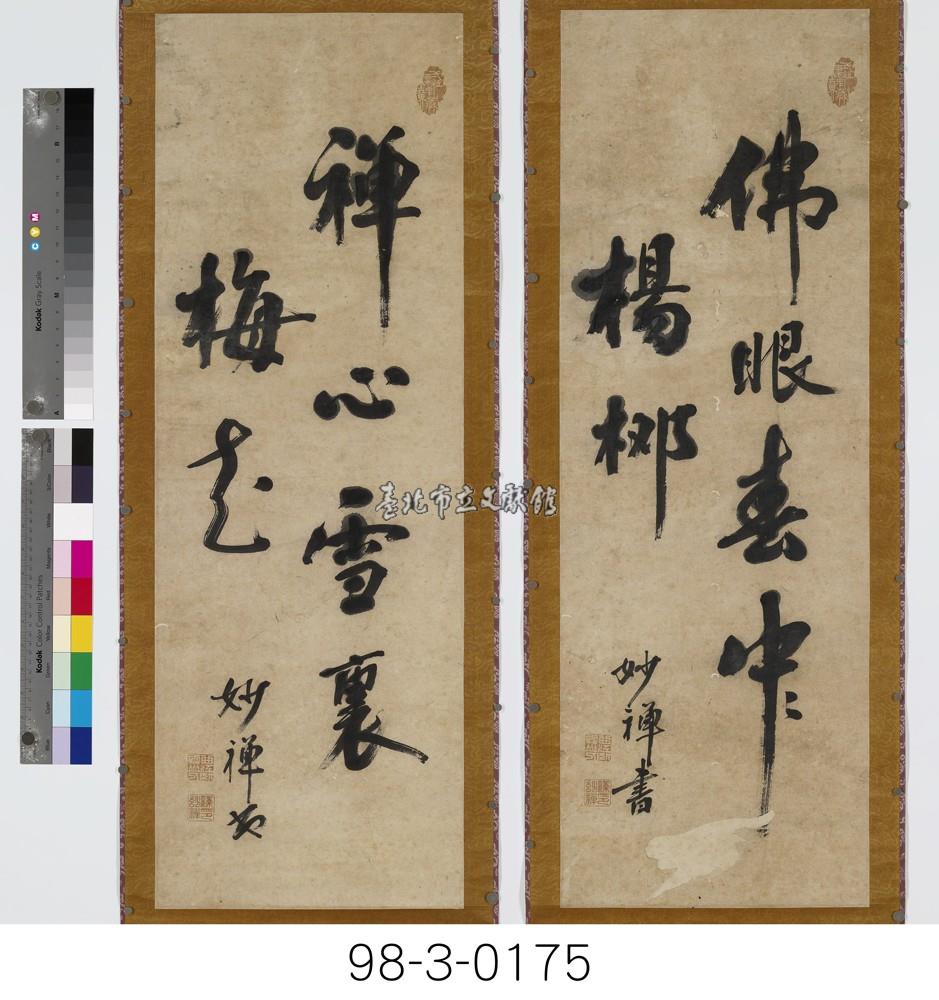 佛眼春中
楊柳
妙禅書
禅心雪裏
梅花
妙禅書
臺北市立文獻館
Kodak Gray Scale
C Y M
A
M
B
Kodak Color Control Patches
Blue
Cyan
Green
Yellow
Red
Magenta
White
3/Color
Black
98-3-0175